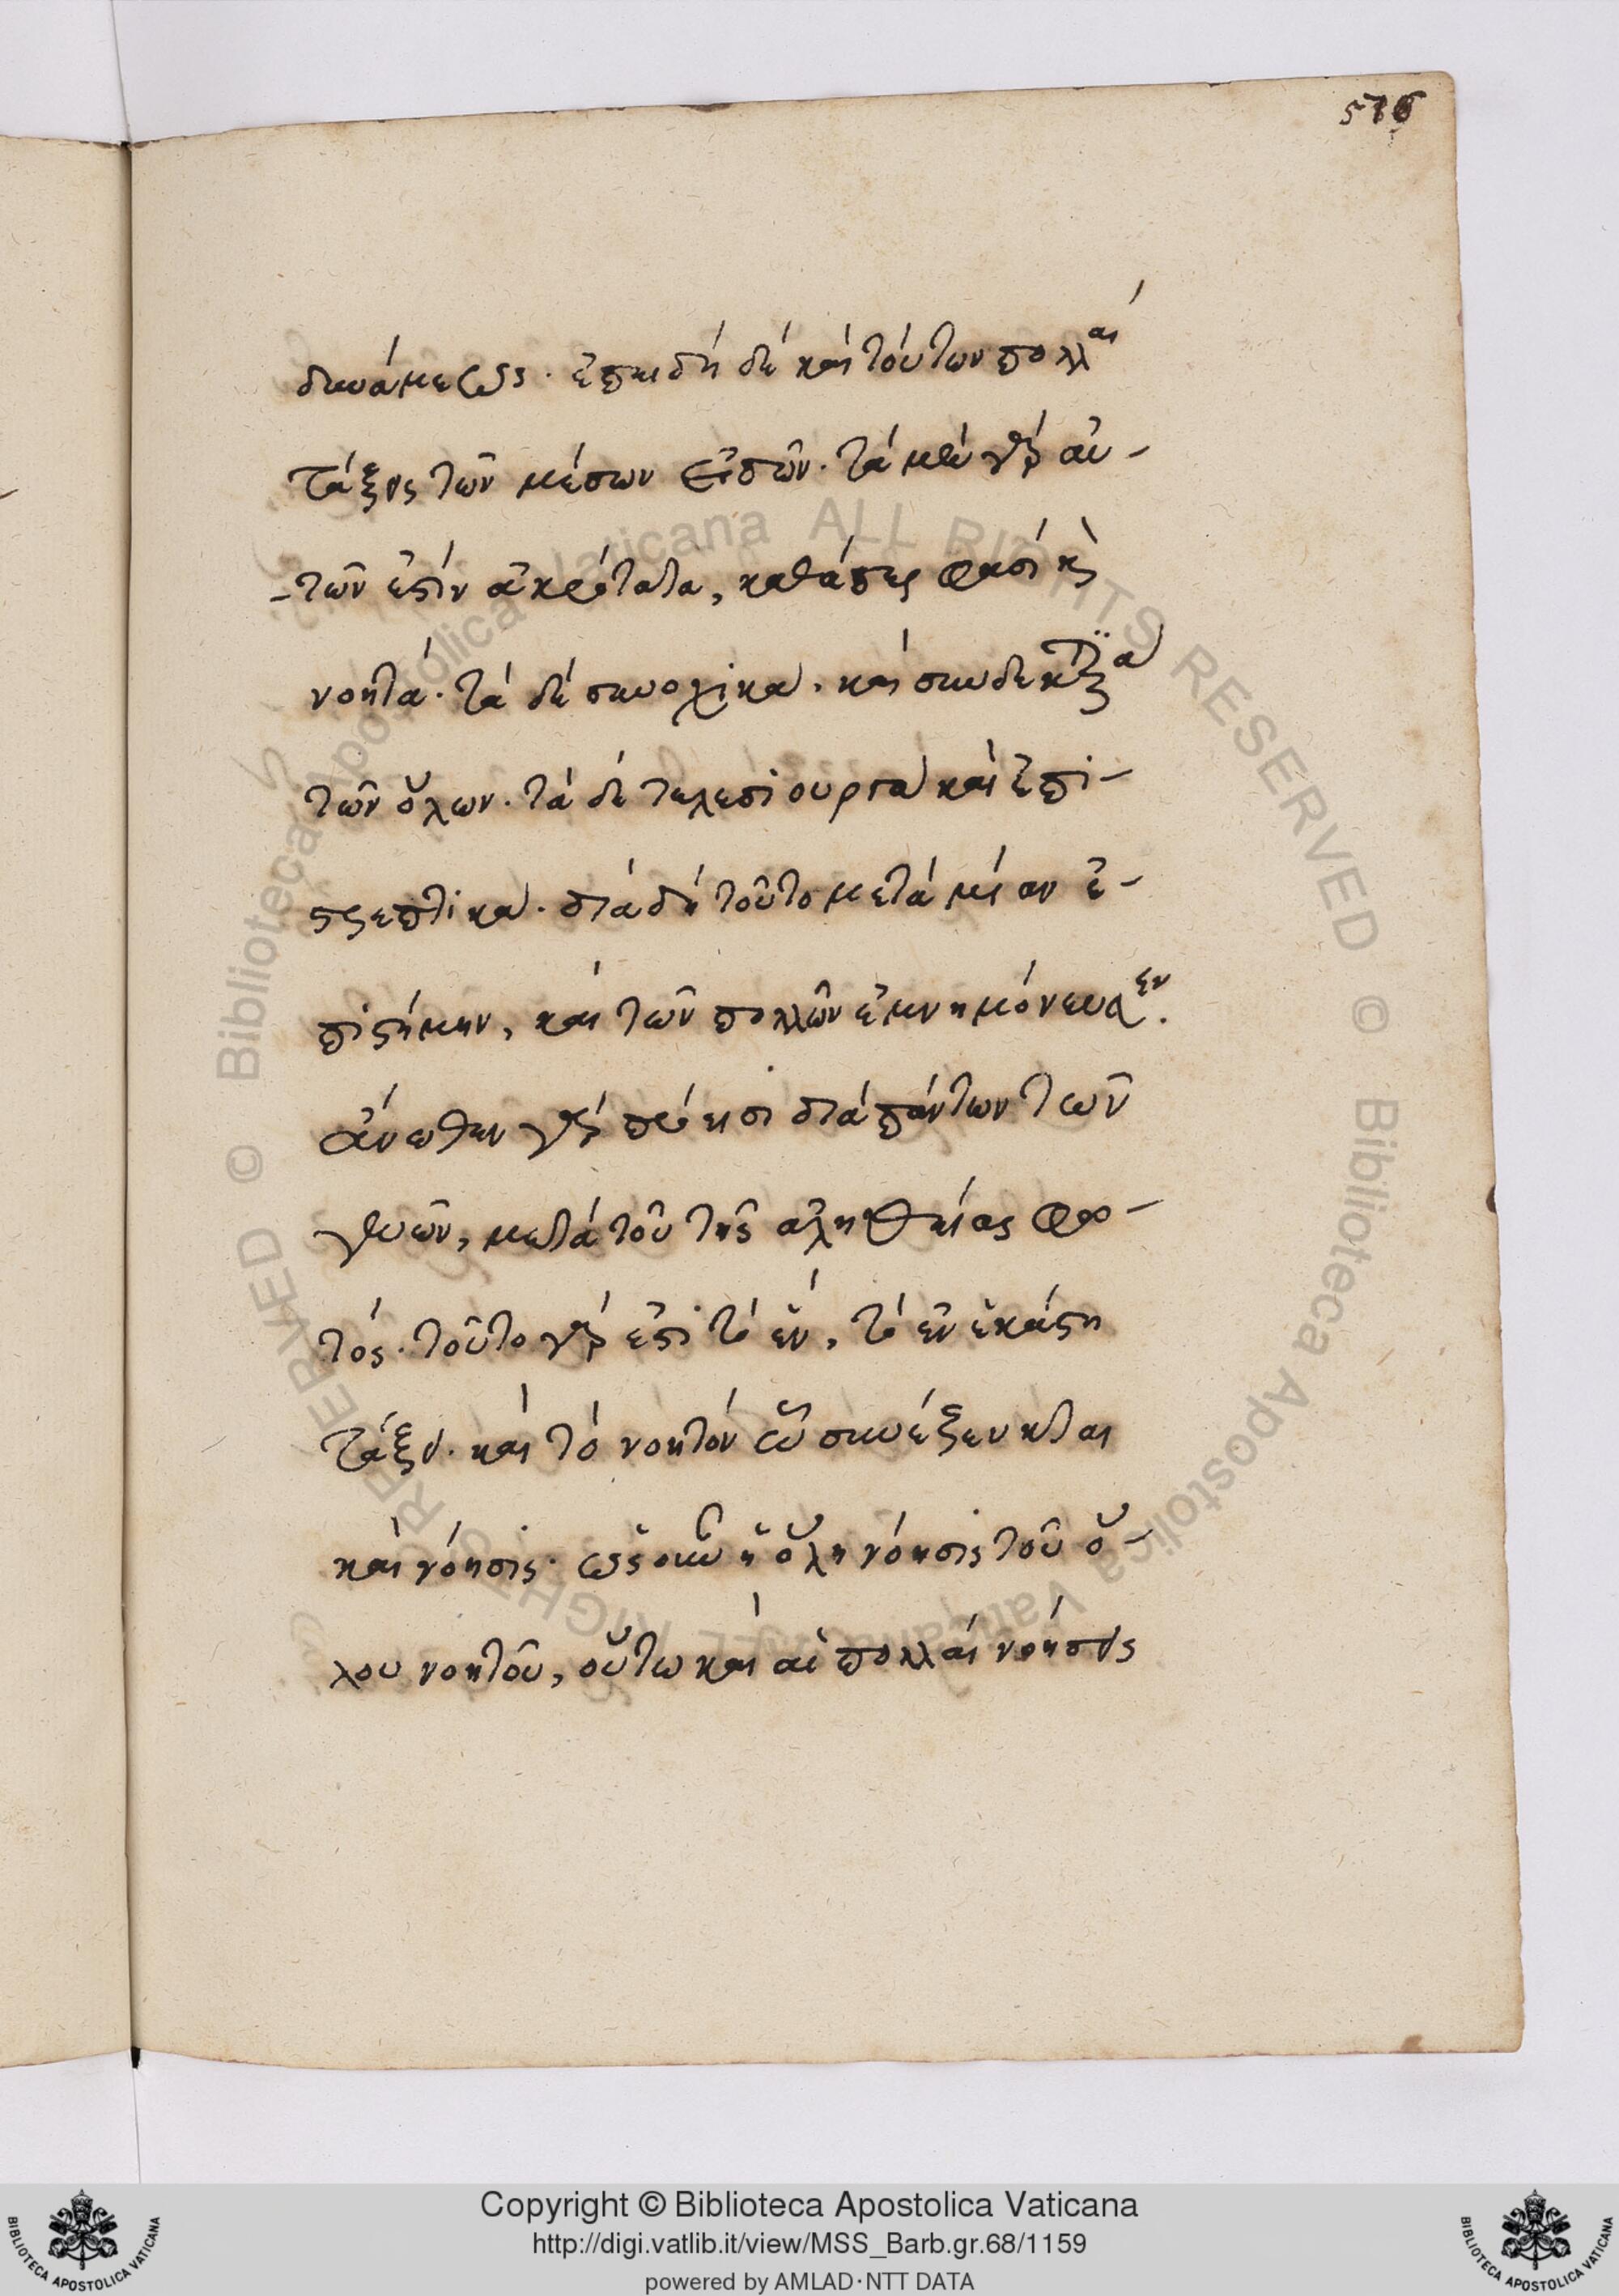 576
δυνάμεως. ἐπειδὴ δὲ καὶ τούτων πολλαὶ
τάξεις τῶν μέσων εἰδῶν. τὰ μὲν γὰρ αὐ-
-τῶν ἐστὶν ἀκρότατα, καθάπερ φασὶ καὶ
νοητά. τὰ δὲ συνοχικὰ. καὶ συνδεκτικὰ
τῶν ὅλων. τὰ δὲ τελεσιουργὰ καὶ ἐπι-
στρεπτικὰ. διὰ δὴ τοῦτο μετὰ μίαν ἐ-
πιστήμην, καὶ τῶν πολλῶν ἐμνημόνευσεν.
ἄνωθεν γὰρ πρόεισι διὰ πάντων τῶν
γενῶν, μετὰ τοῦ τῆς ἀληθείας φω-
τός. τοῦτο γὰρ ἐστὶ τὸ ἓν, τὸ ἐν ἑκάστῃ
τάξει. καὶ τὸ νοητὸν ᾧ συνέζευκται
καὶ νόησις. ὡς οὖν ἡ ὅλη νόησις τοῦ ὅ-
λου νοητοῦ, οὕτω καὶ αἱ πολλαὶ νοήσεις
Copyright © Biblioteca Apostolica Vaticana
http://digi.vatlib.it/view/MSS_Barb.gr.68/1159
powered by AMLAD·NTT DATA
BIBLIOTECA APOSTOLICA VATICANA
BIBLIOTECA APOSTOLICA VATICANA
© Biblioteca Apostolica Vaticana ALL RIGHTS RESERVED © Biblioteca Apostolica Vaticana ALL RIGHTS RESERVED